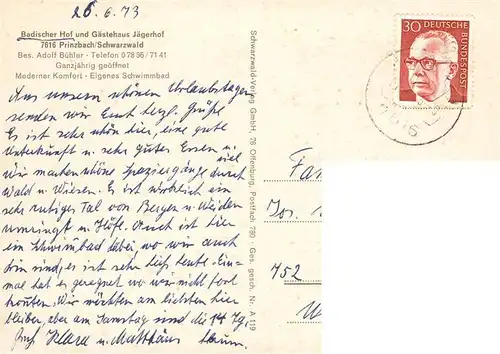 26.6.73
Badischer Hof und Gästehaus Jägerhof
7616 Prinzbach/Schwarzwald
Bes. Adolf Bühler - Telefon 07836/7141
Ganzjährig geöffnet
Moderner Komfort - Eigenes Schwimmbad
Aus unsern schönen Urlaubstagen
senden wir Euch herzl. Grüße
Es ist sehr schön hier, eine gute
Unterkunft u. sehr gutes Essen
Wir machen schöne Spaziergänge durch
Wald u. Wiesen. Es ist wirklich ein
sehr ruhiges Tal von Bergen u. Weiden
umringt u. Höfe. Auch ist hier
ein Schwimmbad dabei, wo wir auch
drin sind, es ist sehr heiß heute. Ein-
mal hat es geregnet wo wir nicht fort
konnten. Wir möchten am liebsten hier
bleiben, aber am Samstag sind die 14 Tg.
Klara u. Matthäus
Schwarzwald-Verlag GmbH, 76 Offenburg, Postfach 789 · Ges. gesch. Nr. A 119
30 DEUTSCHE BUNDESPOST
Fa
Jos.
752